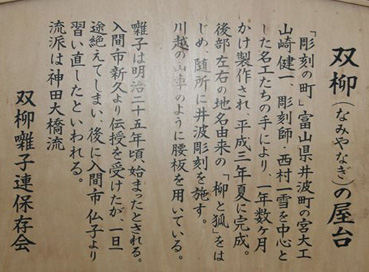 双柳(なみやなぎ)の屋台
「彫刻の町」富山県井波町の宮大工
山崎健一 彫刻師・西村一雪を中心と
した名工たちの手により、一年数ヶ月
かけ製作され、平成三年夏に完成。
後部左右の地名由来の「柳と狐」をは
じめ、随所に井波彫刻を施す。
川越の山車のように腰板を用いている。
囃子は明治二十五年頃、始まったとされる。
入間市新久より伝授を受けたが、一旦
途絶えてしまい、後に入間市仏子より
習い直したといわれる。
流派は神田大橋流
双柳囃子連保存会